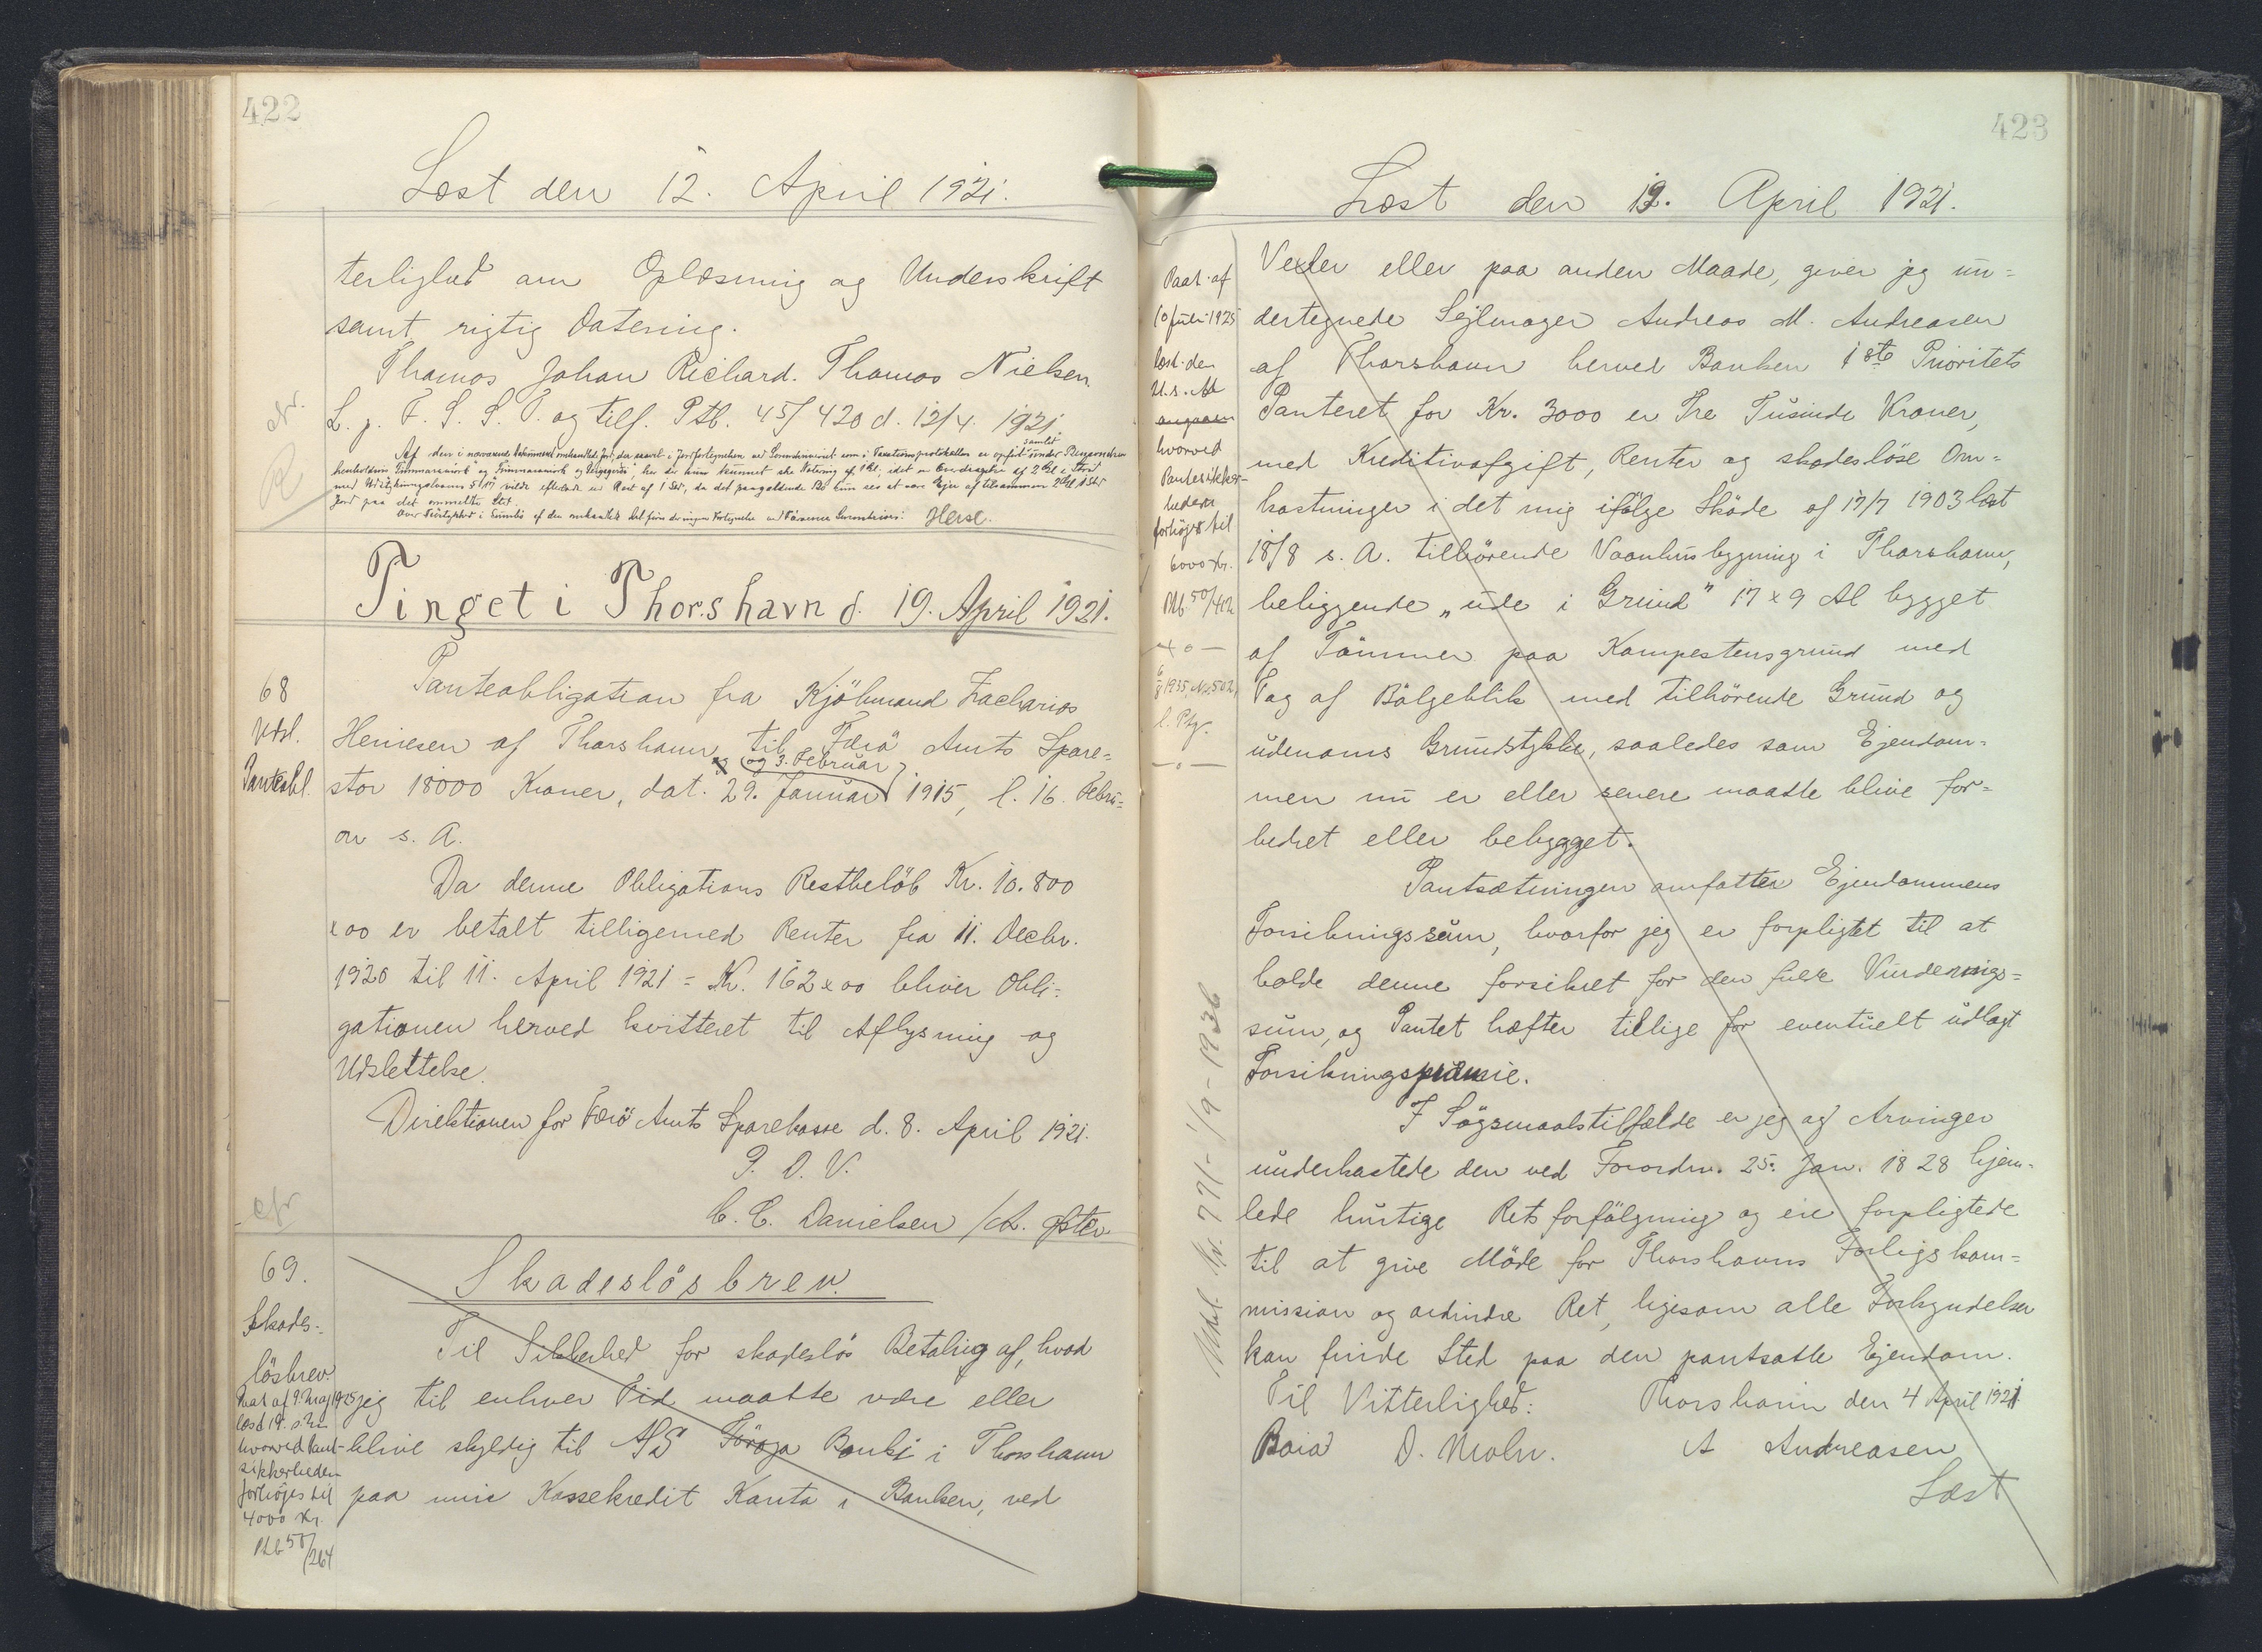 422
Læst den 12. April 1921.
terlighed om Oplæsning og Underskrift
samt rigtig Datering.
Thomas Johan Richard. Thomas Nielsen.
L. p. F. S. S. T. og tilf. Ptb. 45/420 d. 12/4. 1921.
Hersl.
Tinget i Thorshavn d. 19. April 1921.
68
Udsl.
Panteobl.
Panteobligation fra Kjöbmand Zacharias
Heinesen af Thorshavn til Færö Amts Spare=
og 3. Februar
stor 18000 Kroner, dat. 29. Januar 1915, l. 16. Febru=
ar s. A.
Da denne Obligations Restbelöb Kr. 10.800
x 00 er betalt tilligemed Renter fra 11. Decbr.
1920 til 11. April 1921 = Kr. 162 x 00 bliver Obli=
gationen herved kvitteret til Aflysning og
Udslettelse.
Direktionen for Færö Amts Sparekasse d. 8. April 1921.
P. D. V.
C. C. Danielsen
69.
Skades=
lösbrev
Paat. af 9. Maj 1925
læst 19. s. M.
hvorved Pant-
sikkerheden
forhöjes til
4000 Kr.
Ptb 50/264
Skadeslösbrev.
Til Sikkerhed for skadeslös Betaling af, hvad
jeg til enhver Tid maatte være eller
blive skyldig til A/S Föroya Banki i Thorshavn
paa min Kassekredit Konto i Banken, ved
423
Læst den 19. April 1921.
Paat. af
10 Juli 1925
læst den
21. s. M.
angaaen
hvorved
Pantesikker-
heden
forhöjes til
6000 Kr.
Ptb. 50/402
Vexler eller paa anden Maade, giver jeg un=
dertegnede Sejlmager Andreas M. Andreasen
af Thorshavn herved Banken 1ste Prioritets
Panteret for Kr. 3000 er Tre Tusinde Kroner,
med Kreditivafgift, Renter og skadeslöse Om=
kostninger i det mig ifölge Sköde af 17/7 1903 læst
18/8 s. A. tilhörende Vaanhusbygning i Thorshavn,
beliggende „ude i Grund" 17 x 9 Al bygget
af Tömmer paa Kampestensgrund med
Tag af Bölgeblik med tilhörende Grund og
udenoms Grundstykke, saaledes som Ejendom=
men nu er eller senere maatte blive for=
bedret eller bebygget.
Pantsætningen omfatter Ejendommens
Forsikringssum, hvorfor jeg er forpligtet til at
holde denne forsikret for den fulde Vurderings=
sum, og Pantet hæfter tillige for eventuelt udlagt
Forsikringspræmie.
I Sögsmaalstilfælde er jeg og Arvinger
underkastede den ved Forordn. 25. Jan. 1828 hjem=
lede hurtige Retsforfölgning og ere forpligtede
til at give Möde for Thorshavns Forligskom=
mission og ordinære Ret, ligesom alle Forkyndelser
kan finde Sted paa den pantsatte Ejendom.
Til Vitterlighed: Thorshavn den 4 April 1921
D. Mohr. A Andreasen
Læst
Udsl. Nr. 771 - 1/9 - 1936